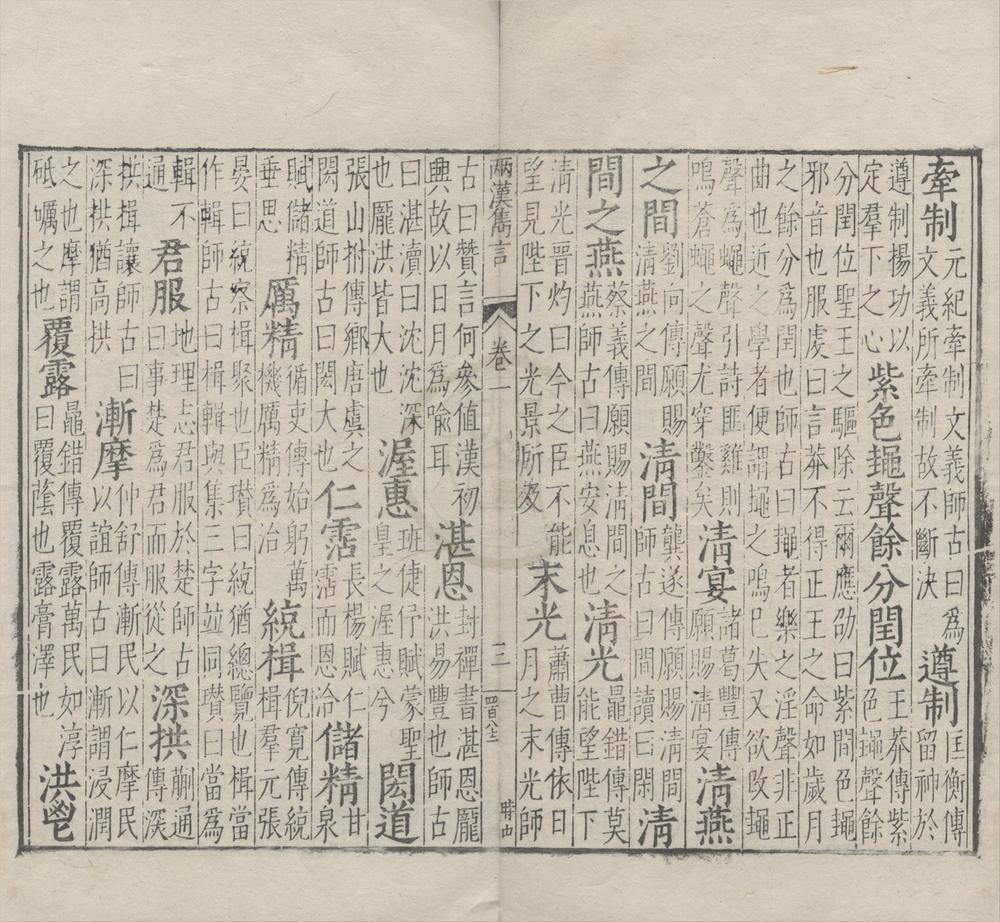 牽制元紀牽制文義師古曰為文義所牽制故不斷決遵制匡衡傳留神於
遵制揚功以定羣下之心紫色䵷聲餘分閏位王莽傳紫色䵷聲餘
分閏位聖王之驅除云爾應劭曰紫間色䵷
邪音也服虔曰言莽不得正王之命如歲月
之餘分為閏也師古曰䵷者樂之淫聲非正
曲也近之學者便謂䵷之鳴已失又欲改䵷
聲為蠅聲引詩匪雞則鳴蒼蠅之聲尤穿鑿矣清宴諸葛豐傳願賜清宴清燕
之間劉向傳願賜清燕之間清間龔遂傳願賜清間師古曰間讀曰閑清
間之燕蔡義傳願賜清間之燕師古曰燕安息也清光鼂錯傳莫能望陛下
清光晉灼曰今之臣不能望見陛下之光景所及末光蕭曹傳依日月之末光師
兩漢雋言
卷一
三
四百八三
時中
古曰贊言何參值漢初興故以日月為喻耳湛恩封禪書湛恩厖洪易豐也師古
曰湛瀆曰沈沈深也厖洪皆大也渥惠班倢伃賦蒙聖皇之渥惠兮閎道
張山拊傳鄉唐虞之閎道師古曰閎大也仁霑長楊賦仁霑而恩洽儲精甘泉
賦儲精垂思厲精循吏傳始躬萬機厲精為治統楫倪寬傳統楫羣元張
晏曰統察楫聚也臣瓚曰統猶總覽也楫當
作輯師古曰楫輯與集三字並同瓚曰當為
輯不通君服地理志君服於楚師古曰事楚為君而服從之深拱蒯通傳深
拱揖讓師古曰深拱猶高拱漸摩董仲舒傳漸民以仁摩民以誼師古曰漸謂浸潤
之也摩謂砥礪之也覆露鼂錯傳覆露萬民如淳曰覆蔭也露膏澤也洪鬯